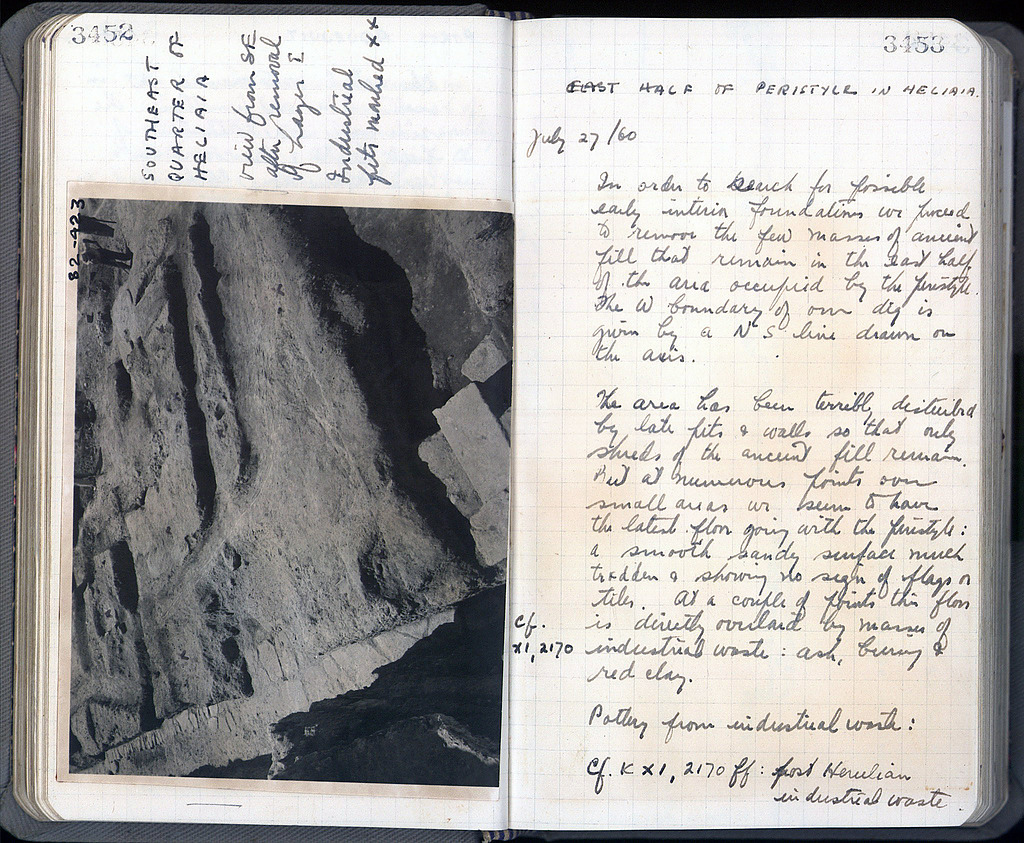 3452
SOUTHEAST
QUARTER OF
HELIAIA
view from SE
after removal
of Layer I
Industrial
pits marked xx
82-423
3453
EAST HALF OF PERISTYLE IN HELIAIA.
July 27/60
In order to search for possible
early interior foundations we proceed
to remove the few masses of ancient
fill that remain in the east half
of the area occupied by the peristyle.
The W boundary of our dig is
given by a N S line drawn on
the axis.
The area has been terribly disturbed
by late pits & walls so that only
shreds of the ancient fill remain.
But at numerous points over
small areas we seem to have
the latest floor going with the peristyle:
a smooth sandy surface much
trodden & showing no sign of flags or
tiles. At a couple of points this floor
is directly overlaid by masses of
industrial waste: ash, burning &
red clay.
Cf.
XI, 2170
Pottery from industrial waste:
Cf. K XI, 2170 ff: post Herulian
industrial waste.